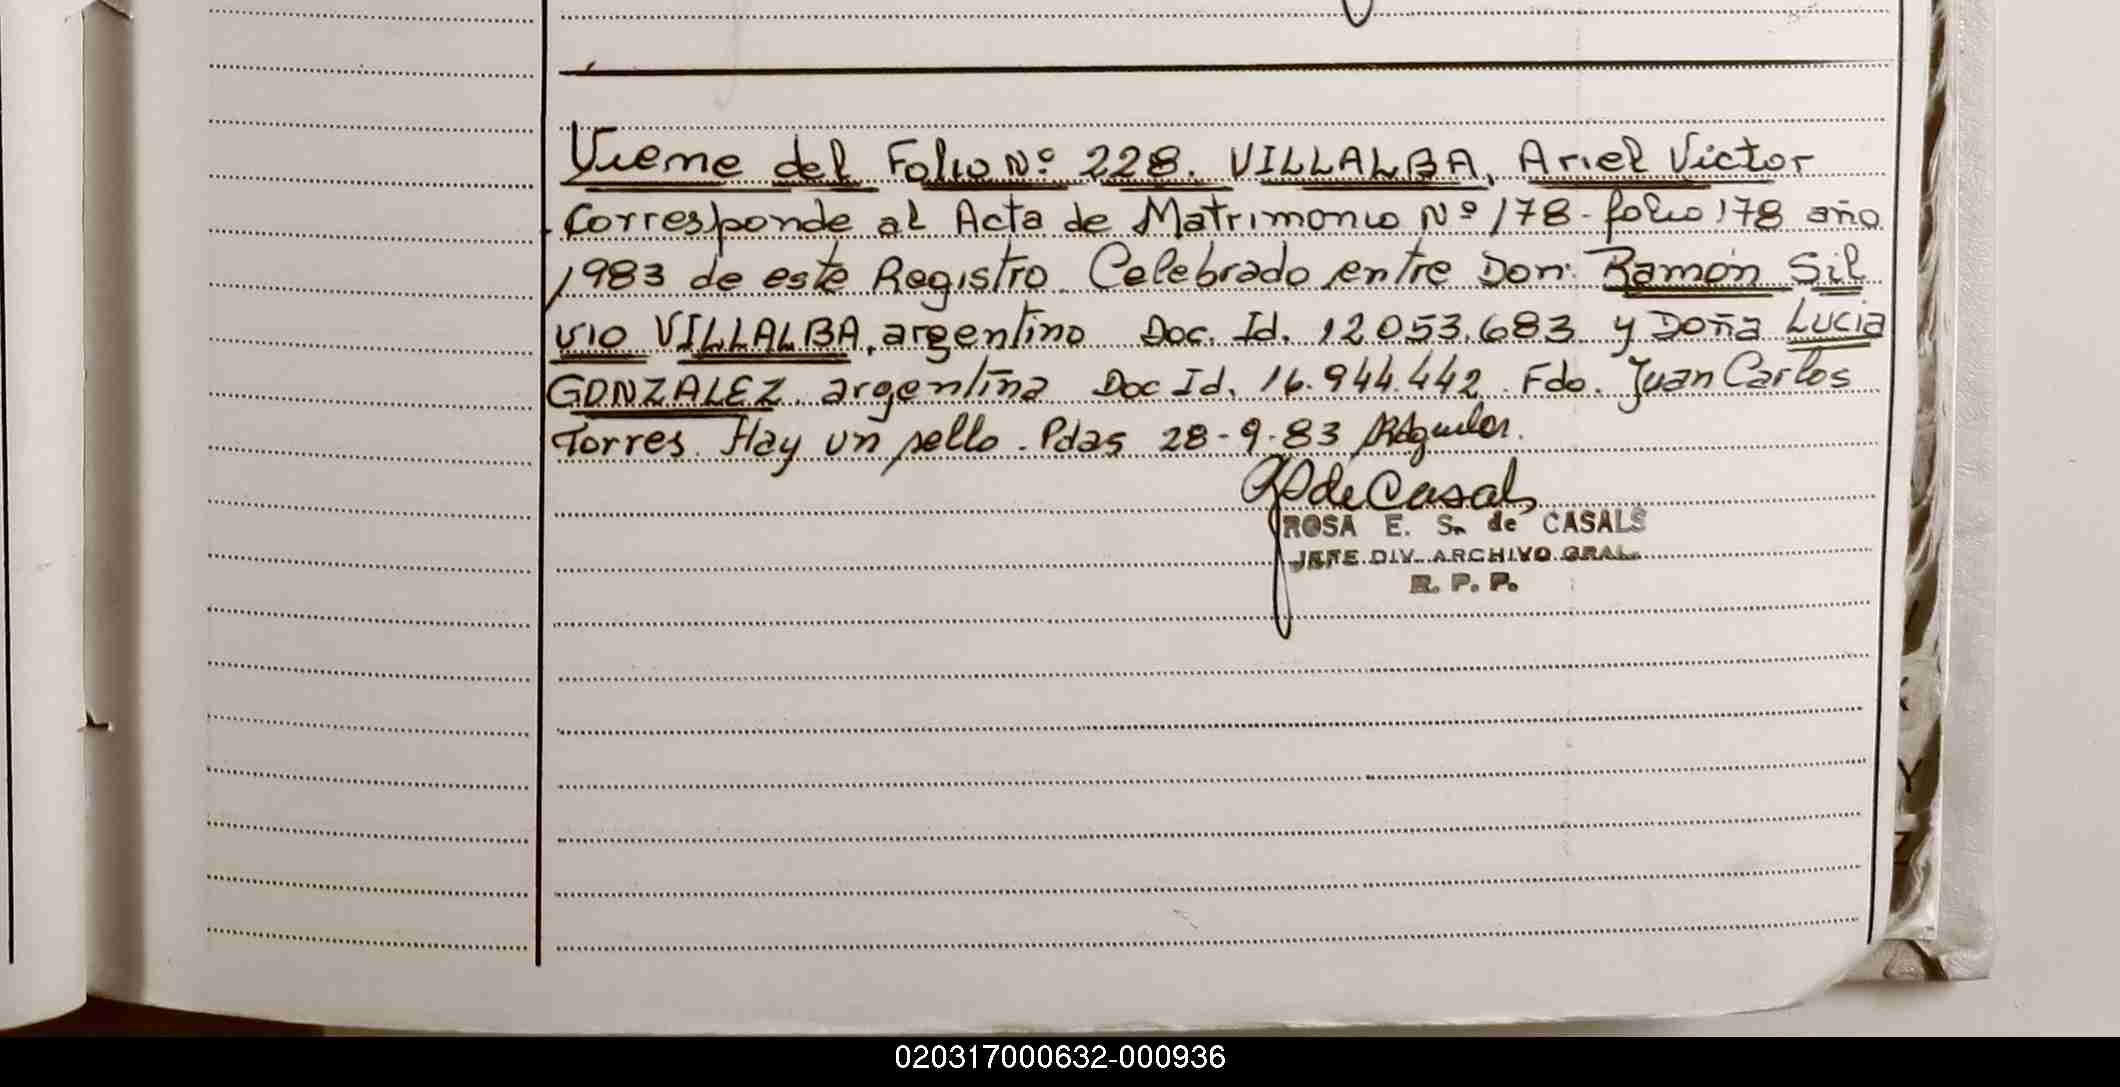 Viene del Folio Nº 228. VILLALBA, Ariel Victor
Corresponde al Acta de Matrimonio Nº 178 - folio 178 año
1983 de este Registro. Celebrado entre Don: Ramón Sil
vio VILLALBA, argentino Doc. Id. 12.053.683 y Doña Lucia
GONZALEZ. argentina Doc Id. 16.944.442. Fdo. Juan Carlos
Torres. Hay un sello. Pdas 28-9-83
de Casals
ROSA E. S. de CASALS
JEFE DIV. ARCHIVO GRAL.
R. P. P.
020317000632-000936